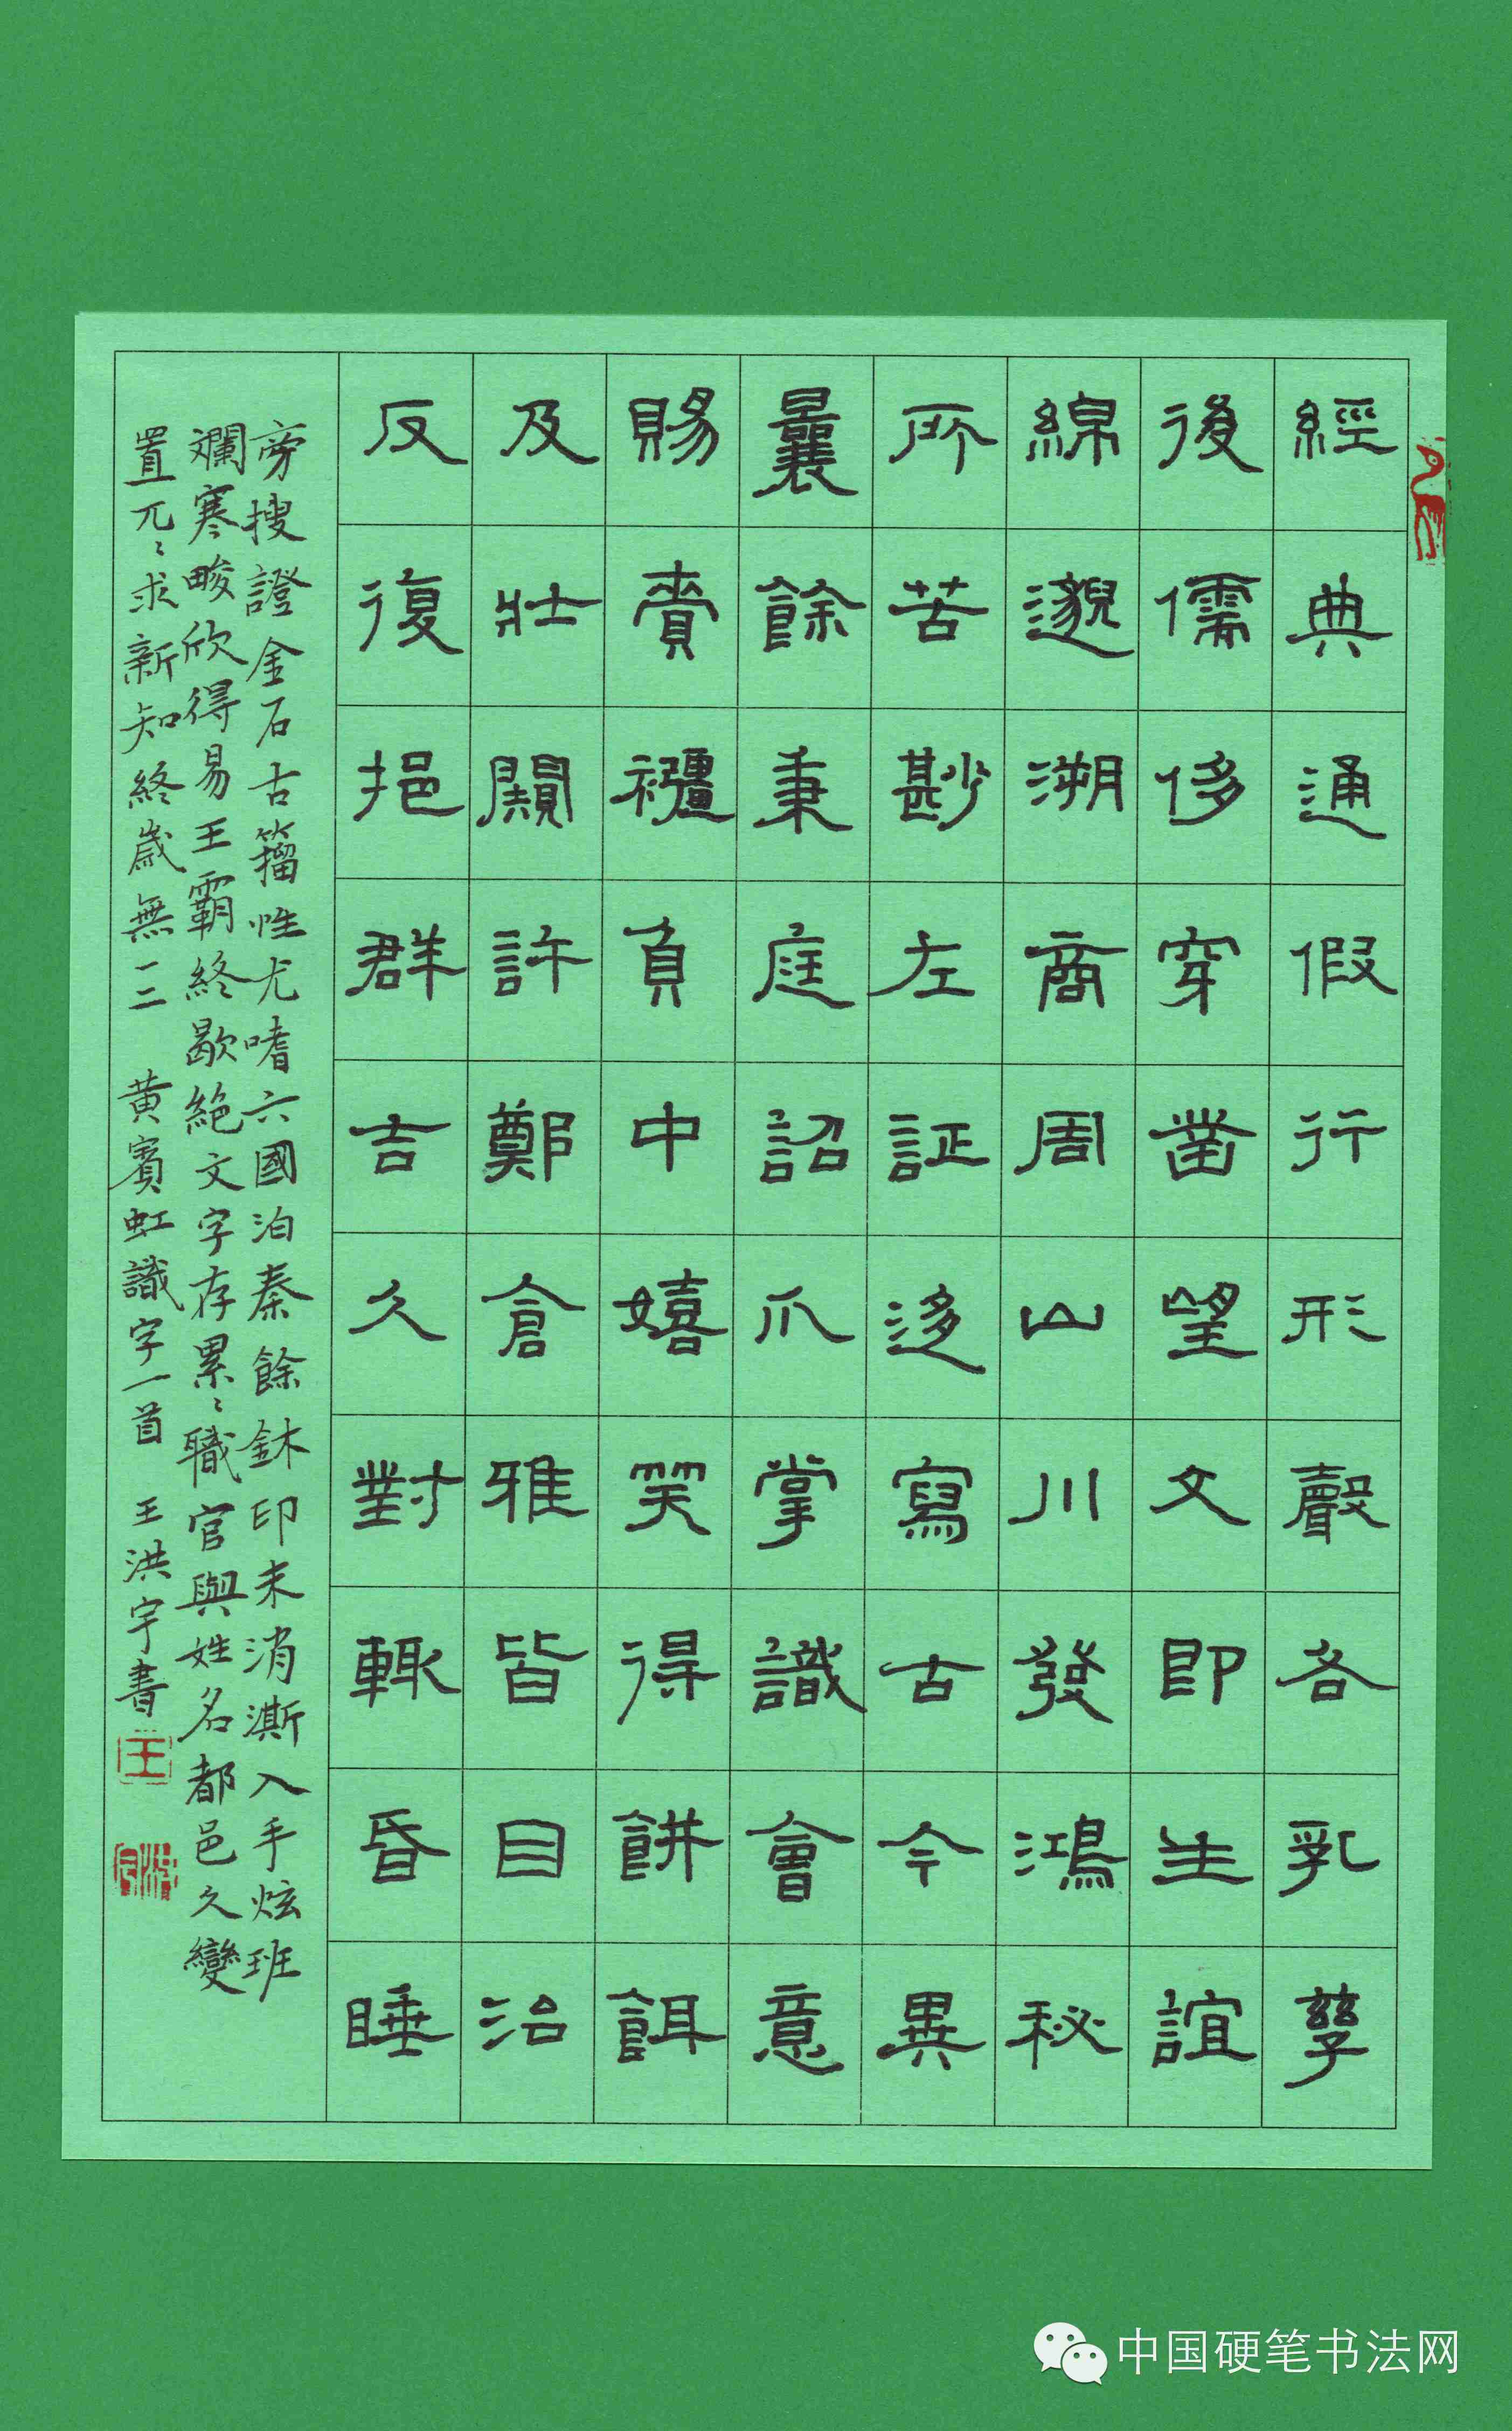 經典通假行形聲各乳孳
後儒侈穿鑿望文即生誼
綿邈溯商周山川發鴻秘
所苦尠左証迻寫古今異
曩餘秉庭詔爪掌識會意
賜賚襁負中嬉笑得餅餌
及壯闚許鄭倉雅皆目治
反復挹群吉久對輒昏睡
旁搜證金石古籀性尤嗜六國洎秦餘鉢印未消澌入手炫班
斕寒畯欣得易王霸終歇絕文字存累〻職官與姓名都邑久變
置兀〻求新知終歲無一二 黃賓虹識字一首 王洪宇書
王
中国硬笔书法网